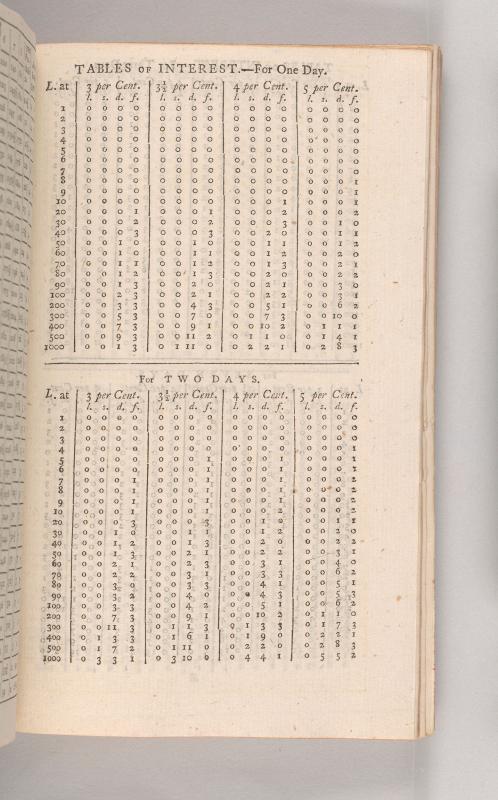 TABLES OF INTEREST.—For One Day.
L. at 3 per Cent. 3½ per Cent. 4 per Cent. 5 per Cent.
l. s. d. f. l. s. d. f. l. s. d. f. l. s. d. f.
1 0 0 0 0 0 0 0 0 0 0 0 0 0 0 0 0
2 0 0 0 0 0 0 0 0 0 0 0 0 0 0 0 0
3 0 0 0 0 0 0 0 0 0 0 0 0 0 0 0 0
4 0 0 0 0 0 0 0 0 0 0 0 0 0 0 0 0
5 0 0 0 0 0 0 0 0 0 0 0 0 0 0 0 0
6 0 0 0 0 0 0 0 0 0 0 0 0 0 0 0 0
7 0 0 0 0 0 0 0 0 0 0 0 0 0 0 0 0
8 0 0 0 0 0 0 0 0 0 0 0 0 0 0 0 1
9 0 0 0 0 0 0 0 0 0 0 0 0 0 0 0 1
10 0 0 0 0 0 0 0 0 0 0 0 1 0 0 0 1
20 0 0 0 1 0 0 0 1 0 0 0 2 0 0 0 2
30 0 0 0 2 0 0 0 2 0 0 0 3 0 0 1 0
40 0 0 0 3 0 0 0 3 0 0 2 0 0 0 1 1
50 0 0 1 0 0 0 1 0 0 0 1 1 0 0 1 2
60 0 0 1 0 0 0 1 1 0 0 1 2 0 0 2 0
70 0 0 1 1 0 0 1 2 0 0 1 3 0 0 2 1
80 0 0 1 2 0 0 1 3 0 0 2 0 0 0 2 2
90 0 0 1 3 0 0 2 0 0 0 2 1 0 0 3 0
100 0 0 2 3 0 0 2 1 0 0 2 2 0 0 3 1
200 0 0 3 3 0 0 4 3 0 0 5 1 0 0 6 2
300 0 0 5 3 0 0 7 0 0 0 7 3 0 0 10 0
400 0 0 7 3 0 0 9 1 0 0 10 2 0 1 1 1
500 0 0 9 3 0 0 11 2 0 1 1 0 0 1 4 1
1000 0 0 1 3 0 1 11 0 0 2 2 1 0 2 8 3
For TWO DAYS.
L. at 3 per Cent. 3½ per Cent. 4 per Cent. 5 per Cent.
l. s. d. f. l. s. d. f. l. s. d. f. l. s. d. f.
1 0 0 0 0 0 0 0 0 0 0 0 0 0 0 0 0
2 0 0 0 0 0 0 0 0 0 0 0 0 0 0 0 0
3 0 0 0 0 0 0 0 0 0 0 0 0 0 0 0 0
4 0 0 0 0 0 0 0 0 0 0 0 0 0 0 0 1
5 0 0 0 0 0 0 0 1 0 0 0 1 0 0 0 1
6 0 0 0 0 0 0 0 1 0 0 0 1 0 0 0 1
7 0 0 0 1 0 0 0 1 0 0 0 1 0 0 0 2
8 0 0 0 1 0 0 0 1 0 0 0 1 0 0 0 2
9 0 0 0 1 0 0 0 1 0 0 0 1 0 0 0 2
10 0 0 0 1 0 0 0 1 0 0 0 2 0 0 0 2
20 0 0 0 3 0 0 0 3 0 0 1 0 0 0 1 1
30 0 0 1 0 0 0 1 1 0 0 1 2 0 0 2 0
40 0 0 1 2 0 0 1 3 0 0 2 0 0 0 2 2
50 0 0 1 3 0 0 2 1 0 0 2 2 0 0 3 1
60 0 0 2 1 0 0 2 3 0 0 3 1 0 0 4 0
70 0 0 2 2 0 0 3 1 0 0 3 3 0 0 6 2
80 0 0 3 0 0 0 3 3 0 0 4 1 0 0 5 1
90 0 0 3 2 0 0 4 0 0 0 4 3 0 0 5 3
100 0 0 3 3 0 0 4 2 0 0 5 1 0 0 6 2
200 0 0 7 3 0 0 9 1 0 0 10 2 0 1 1 0
300 0 0 11 3 0 1 1 3 0 1 3 3 0 1 7 3
400 0 1 3 3 0 1 6 1 0 1 9 0 0 2 2 1
500 0 1 7 2 0 1 11 0 0 2 2 0 0 2 8 3
1000 0 3 3 1 0 3 10 0 0 4 4 1 0 5 5 2